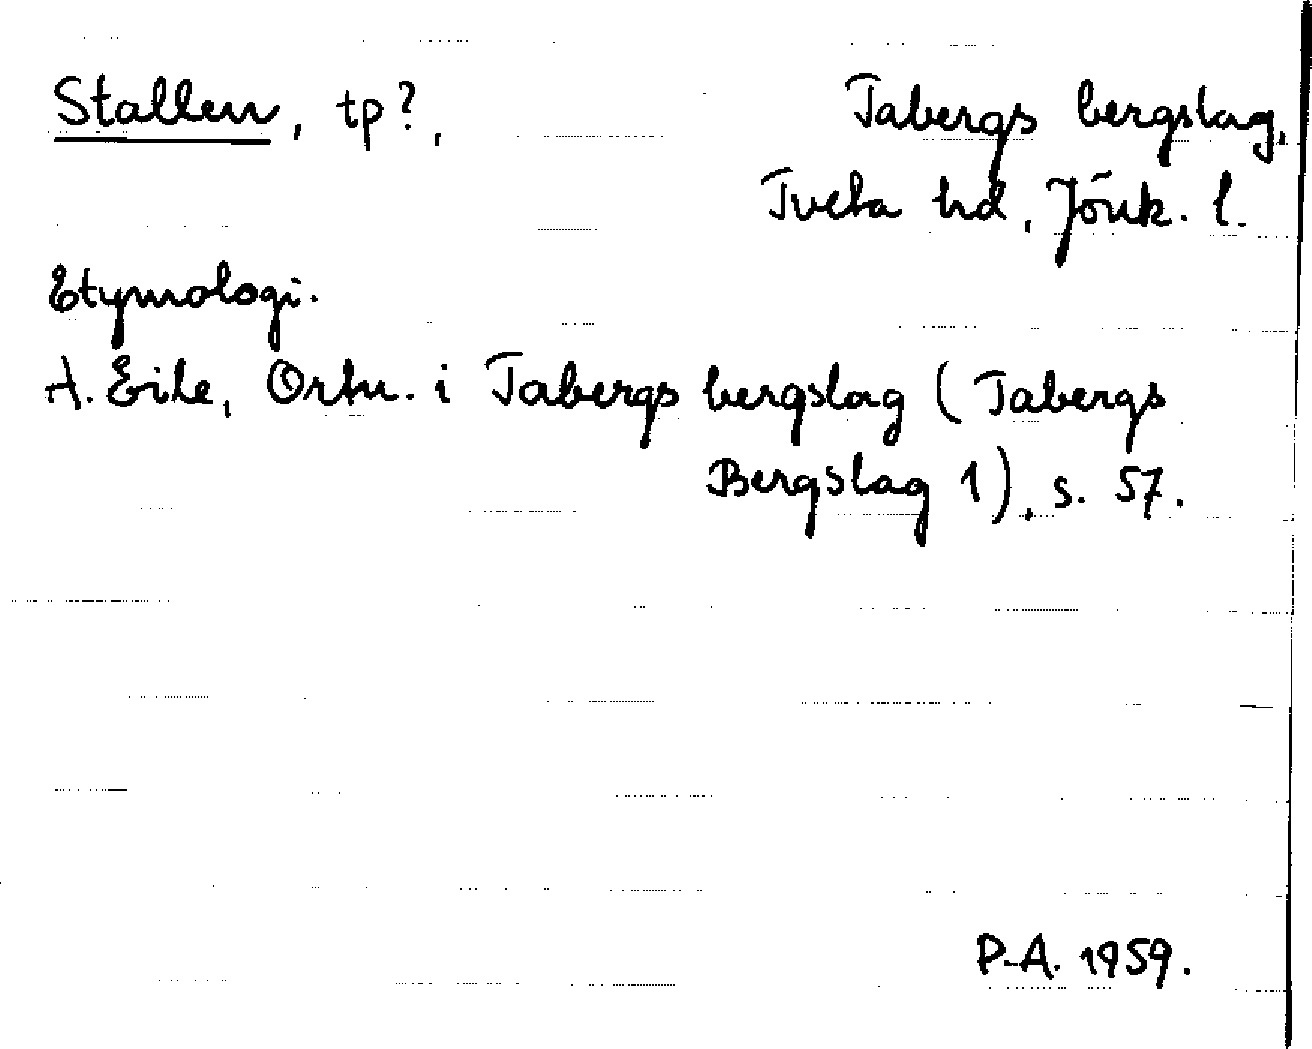 Stallen, tp?, Tabergs bergslag,
Tveta hd, Jönk. l.
Etymologi.
A. Eile, Ortn. i Tabergs bergslag (Tabergs
Bergslag 1), s. 57.
P-A. 1959.